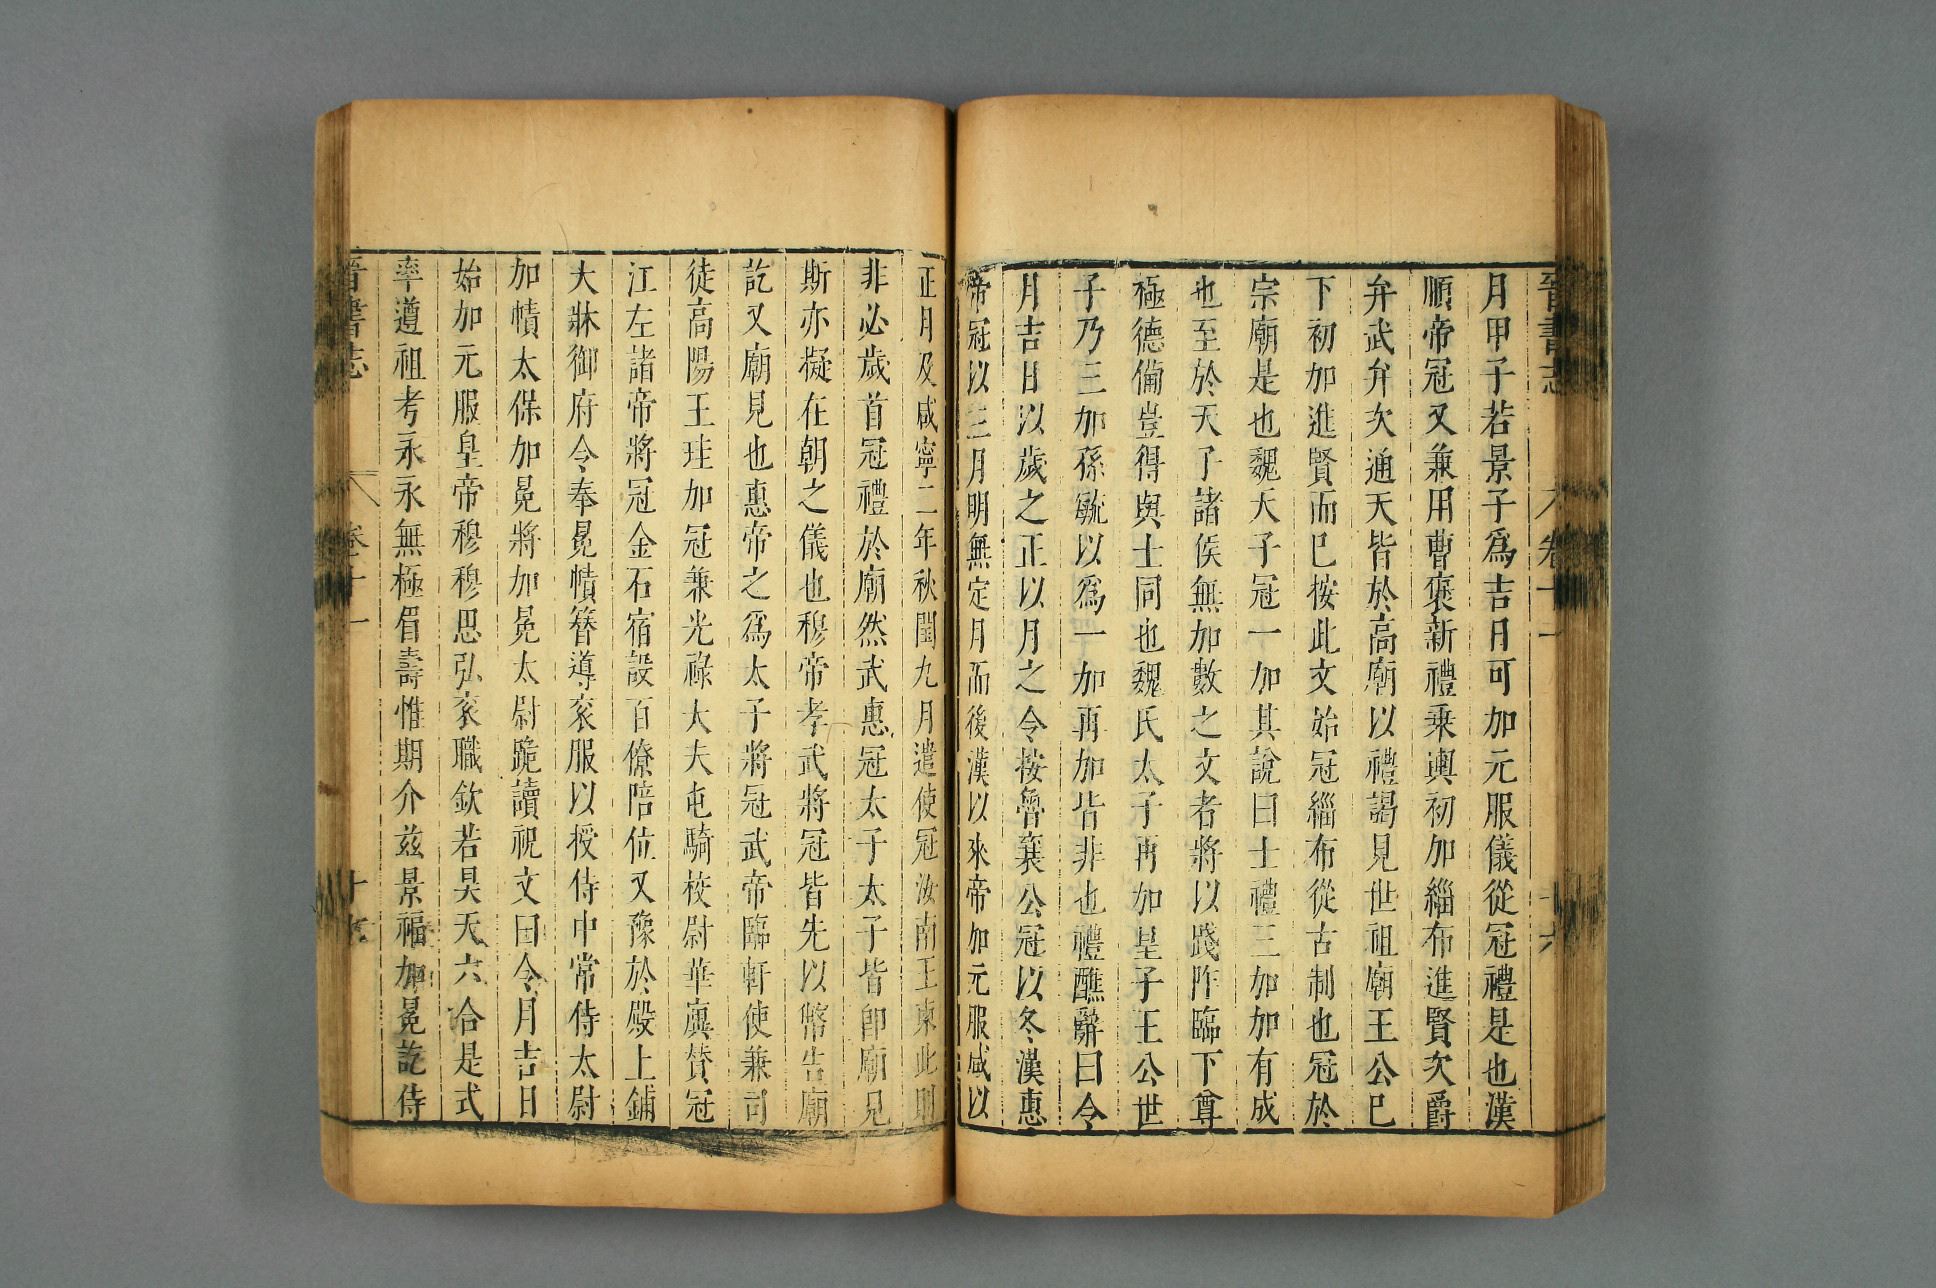 晉書志 卷十一 十六
月甲子若景子爲吉日可加元服儀從冠禮是也漢
順帝冠又兼用曹褒新禮乘輿初加緇布進賢次爵
弁武弁次通天皆於高廟以禮謁見世祖廟王公已
下初加進賢而已按此文始冠緇布從古制也冠於
宗廟是也魏天子冠一加其說曰士禮三加加有成
也至於天子諸侯無加數之文者將以踐阼臨下尊
極德備豈得與士同也魏氏太子再加皇子王公世
子乃三加孫毓以爲一加再加皆非也禮醮辭曰令
月吉日以歲之正以月之令按魯襄公冠以冬漢惠
帝冠以三月明無定月而後漢以來帝加元服咸以
正月及咸寧二年秋閏九月遣使冠汝南王柬此則
非必歲首冠禮於廟然武惠冠太子太子皆卽廟見
斯亦擬在朝之儀也穆帝孝武將冠皆先以幣告廟
訖又廟見也惠帝之爲太子將冠武帝臨軒使兼司
徒高陽王珪加冠兼光祿大夫屯騎校尉華廙贊冠
江左諸帝將冠金石宿設百僚陪位又豫於殿上鋪
大牀御府令奉冕幘簪導衮服以授侍中常侍太尉
加幘太保加冕將加冕太尉跪讀祝文曰令月吉日
始加元服皇帝穆穆思弘衮職欽若昊天六合是式
率遵祖考永永無極眉壽惟期介茲景福加冕訖侍
晉書志 卷十一 十六